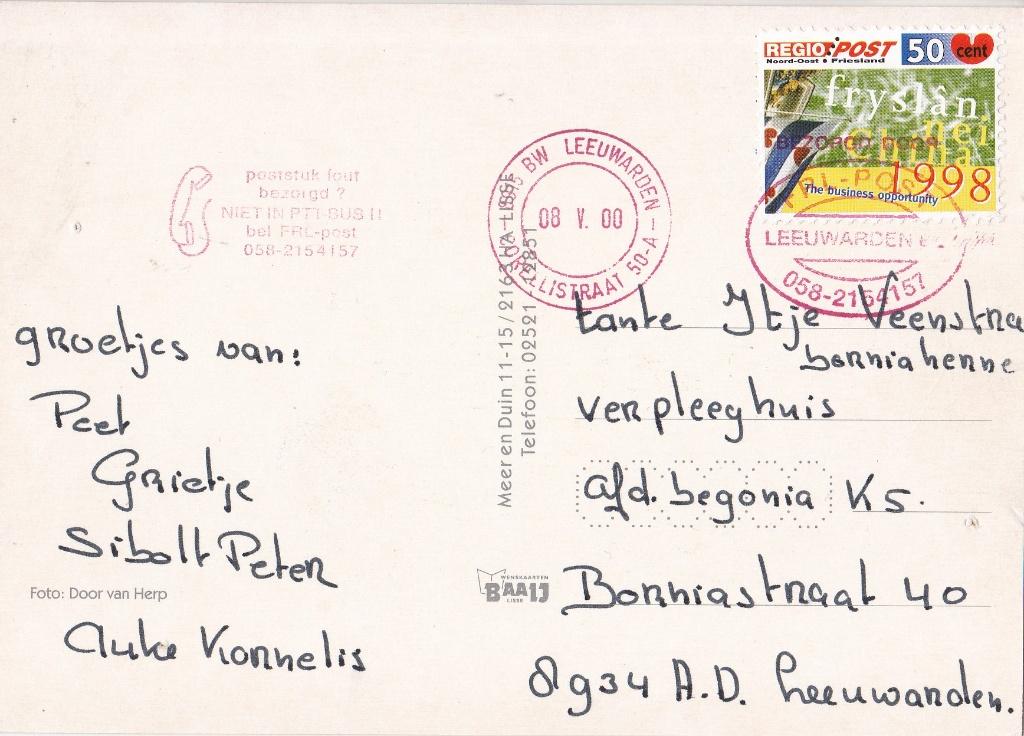 REGIO POST 50 cent
Noord-Oost • Friesland
fryslân
nei
China
1998
The business opportunity
BEZORGD DOOR
FRL-POST
LEEUWARDEN
058-2154157
poststuk fout
bezorgd ?
NIET IN PTT-BUS !!
bel FRL-post
058-2154157
BW LEEUWARDEN
08 V. 00
50-A
groetjes van:
Peet
Grietje
Sibolt Peter
Auke Kornelis
Foto: Door van Herp
Meer en Duin 11-15 / 2163 HA LISSE
Telefoon: 02521
WENSKAARTEN
BAAIJ
LISSE
tante Ytje Veenstra
borniaherne
verpleeghuis
afd. begonia K5.
Borniastraat 40
8934 A.D. Leeuwarden.